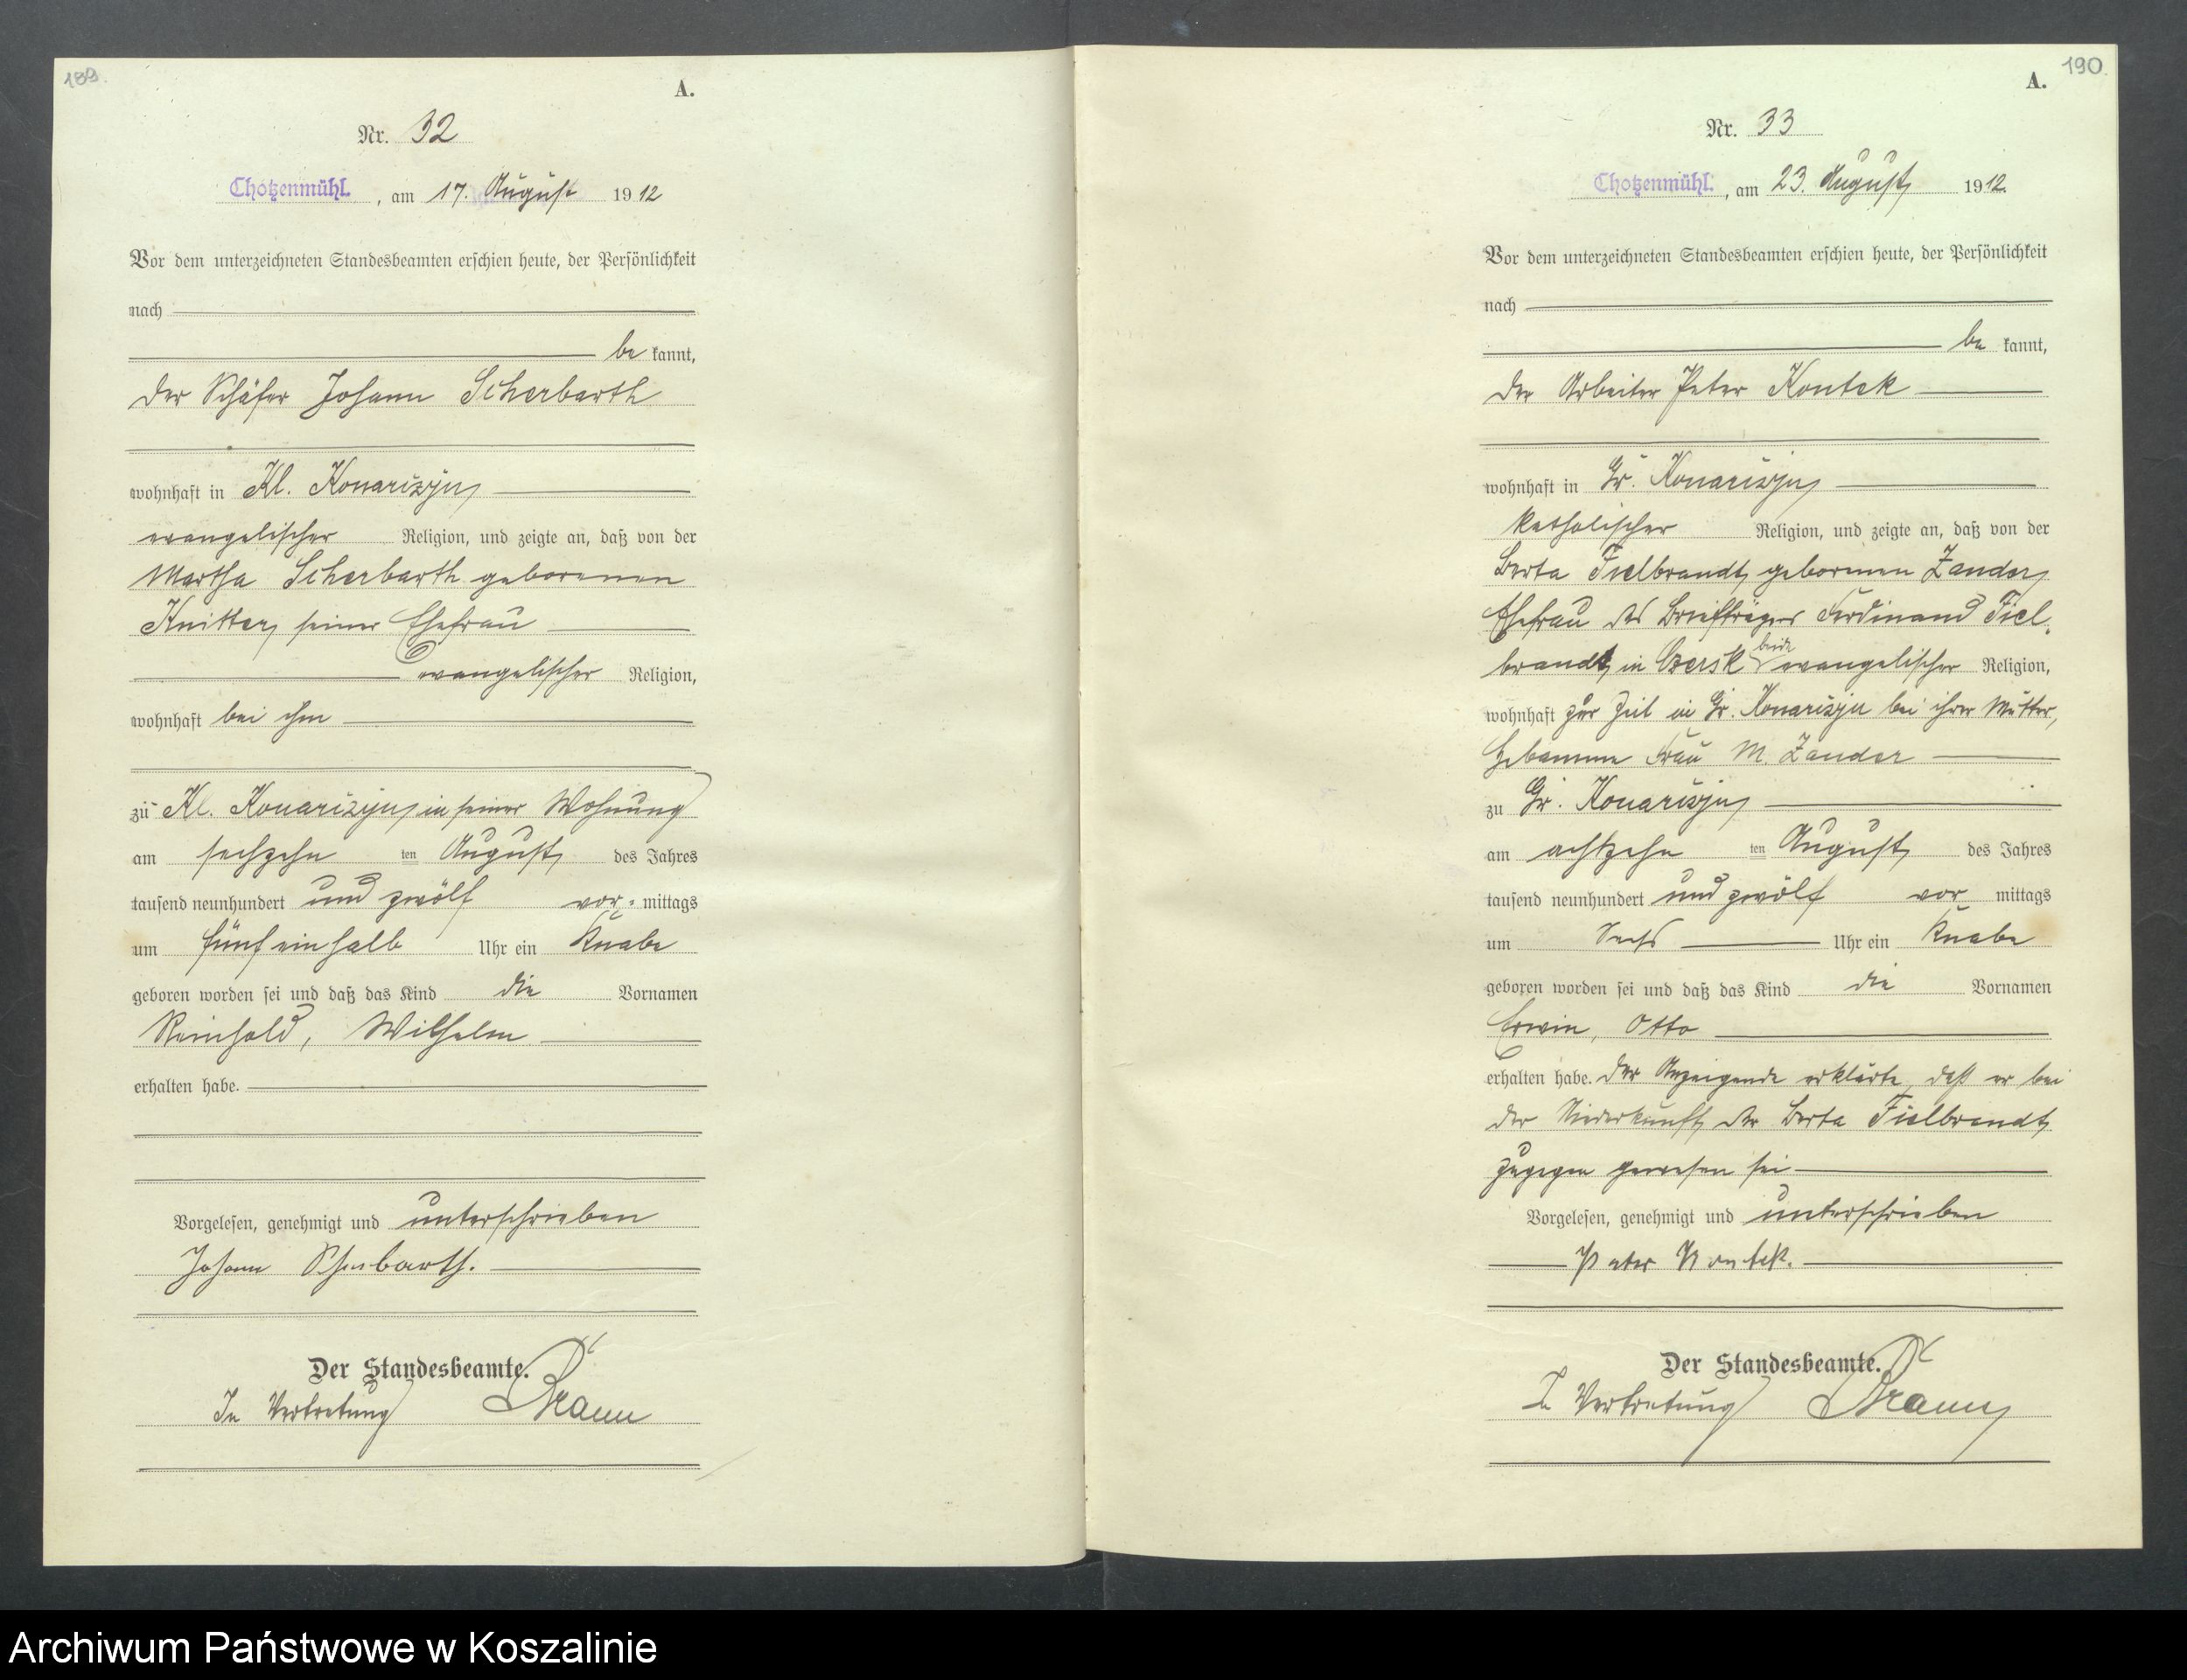 189.
A.
Nr. 32
Chotzenmühl. , am 17. August 1912
Vor dem unterzeichneten Standesbeamten erschien heute, der Persönlichkeit
nach
be kannt,
der Schäfer Johann Scherbarth
wohnhaft in Kl. Konarczyn
evangelischer Religion, und zeigte an, daß von der
Martha Scherbarth geborenen
Knitter, seiner Ehefrau
evangelischer Religion,
wohnhaft bei ihm
zu Kl. Konarczyn, in seiner Wohnung
am sechzehn ten August des Jahres
tausend neunhundert und zwölf vor- mittags
um fünf ein halb Uhr ein Knabe
geboren worden sei und daß das Kind die Vornamen
Reinhold, Wilhelm
erhalten habe.
Vorgelesen, genehmigt und unterschrieben
Johann Scherbarth.
Der Standesbeamte.
In Vertretung
190.
A.
Nr. 33
Chotzenmühl. , am 23. August 1912.
Vor dem unterzeichneten Standesbeamten erschien heute, der Persönlichkeit
nach
be kannt,
der Arbeiter Peter Kontek
wohnhaft in Gr. Konarczyn
katholischer Religion, und zeigte an, daß von der
Berta Fielbrandt, geborenen Zander,
Ehefrau des Briefträgers Ferdinand Fiel-
brandt, in Czersk beide evangelischer Religion,
wohnhaft zur Zeit in Gr. Konarczyn bei ihrer Mutter,
Hebamme Frau M. Zander
zu Gr. Konarczyn
am achtzehn ten August des Jahres
tausend neunhundert und zwölf vor mittags
um Sechs Uhr ein Knabe
geboren worden sei und daß das Kind die Vornamen
Erwin, Otto
erhalten habe. Der Anzeigende erklärte, daß er bei
der Niederkunft der Berta Fielbrandt
zugegen gewesen sei
Vorgelesen, genehmigt und unterschrieben
Peter Kontek.
Der Standesbeamte.
In Vertretung
Archiwum Państwowe w Koszalinie